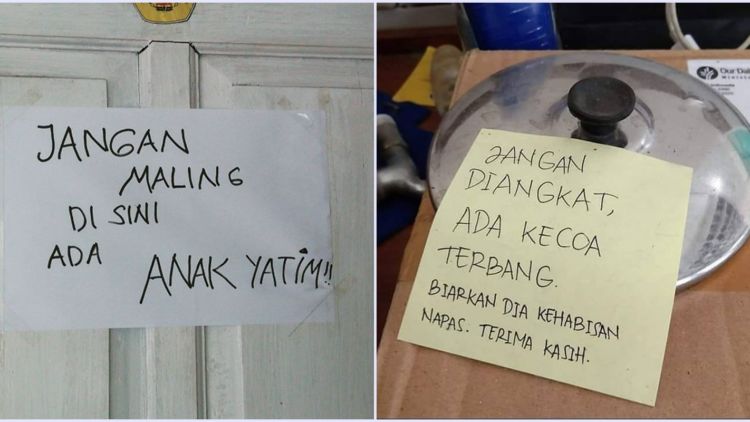 JANGAN
MALING
DI SINI
ADA
ANAK YATIM!!
JANGAN
DIANGKAT,
ADA KECOA
TERBANG.
BIARKAN DIA KEHABISAN
NAPAS. TERIMA KASIH.
Our Dai